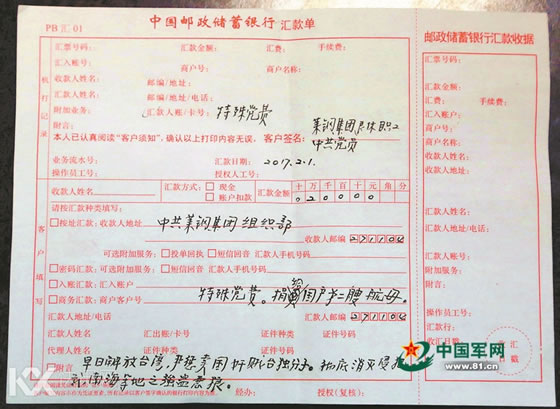 PB汇01
中国邮政储蓄银行 汇款单
邮政储蓄银行汇款收据
机打记录
汇票号码： 汇款金额： 汇费： 手续费：
汇入账号： 商户号： 商户名称：
收款人姓名： 邮编/地址：
汇款人姓名： 邮编/地址/电话：
附加业务： 汇款人账/卡号： 特殊党费
附言：
本人已认真阅读“客户须知”，确认以上打印内容无误。 客户签名： 莱钢集团退休职工
中共党员
业务流水号： 汇款日期： 2017.2.1.
操作员工号： 授权人工号：
客户填写
收款人姓名： 汇款方式： 现金 账户扣款 汇款金额 十万千百十元角分
020000
请按汇款种类填写：
按址汇款：收款人地址 中共莱钢集团组织部
收款人邮编 271104
可选附加服务： 投单回执 短信回音 汇款人手机号码
密码汇款 可选附加服务： 短信回音 汇款人手机号码
入账汇款：汇入账户
商务汇款：商户客户号
特殊党费。捐给国产第二艘航母。
汇款人姓名： 邮编 271104
汇款人地址 电话
汇款人姓名： 汇出账/卡号 证件种类： 证件号码：
代理人姓名： 证件种类： 证件号码：
附言： 早日解放台湾，严惩卖国奸贼台独分子。彻底消灭侵
南海等地之强盗恶狼。
经办： 授权(复核)：
汇票号码：
汇款金额：
汇费： 手续费：
汇入账户：
商户号：
商户名称：
收款人姓名：
收款人地址：
汇款人姓名：
汇款人地址：
附加服务：
附言：
操作员工号：
汇款行：
收汇日期：
收汇
日戳
中国军网
www.81.cn
KX